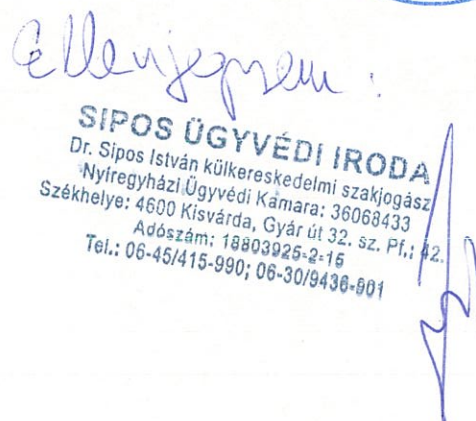 Ellenjegyzem:
SIPOS ÜGYVÉDI IRODA
Dr. Sipos István külkereskedelmi szakjogász
Nyíregyházi Ügyvédi Kamara: 36068433
Székhelye: 4600 Kisvárda, Gyár út 32. sz. Pf.: 42.
Adószám: 18803925-2-15
Tel.: 06-45/415-990; 06-30/9436-901